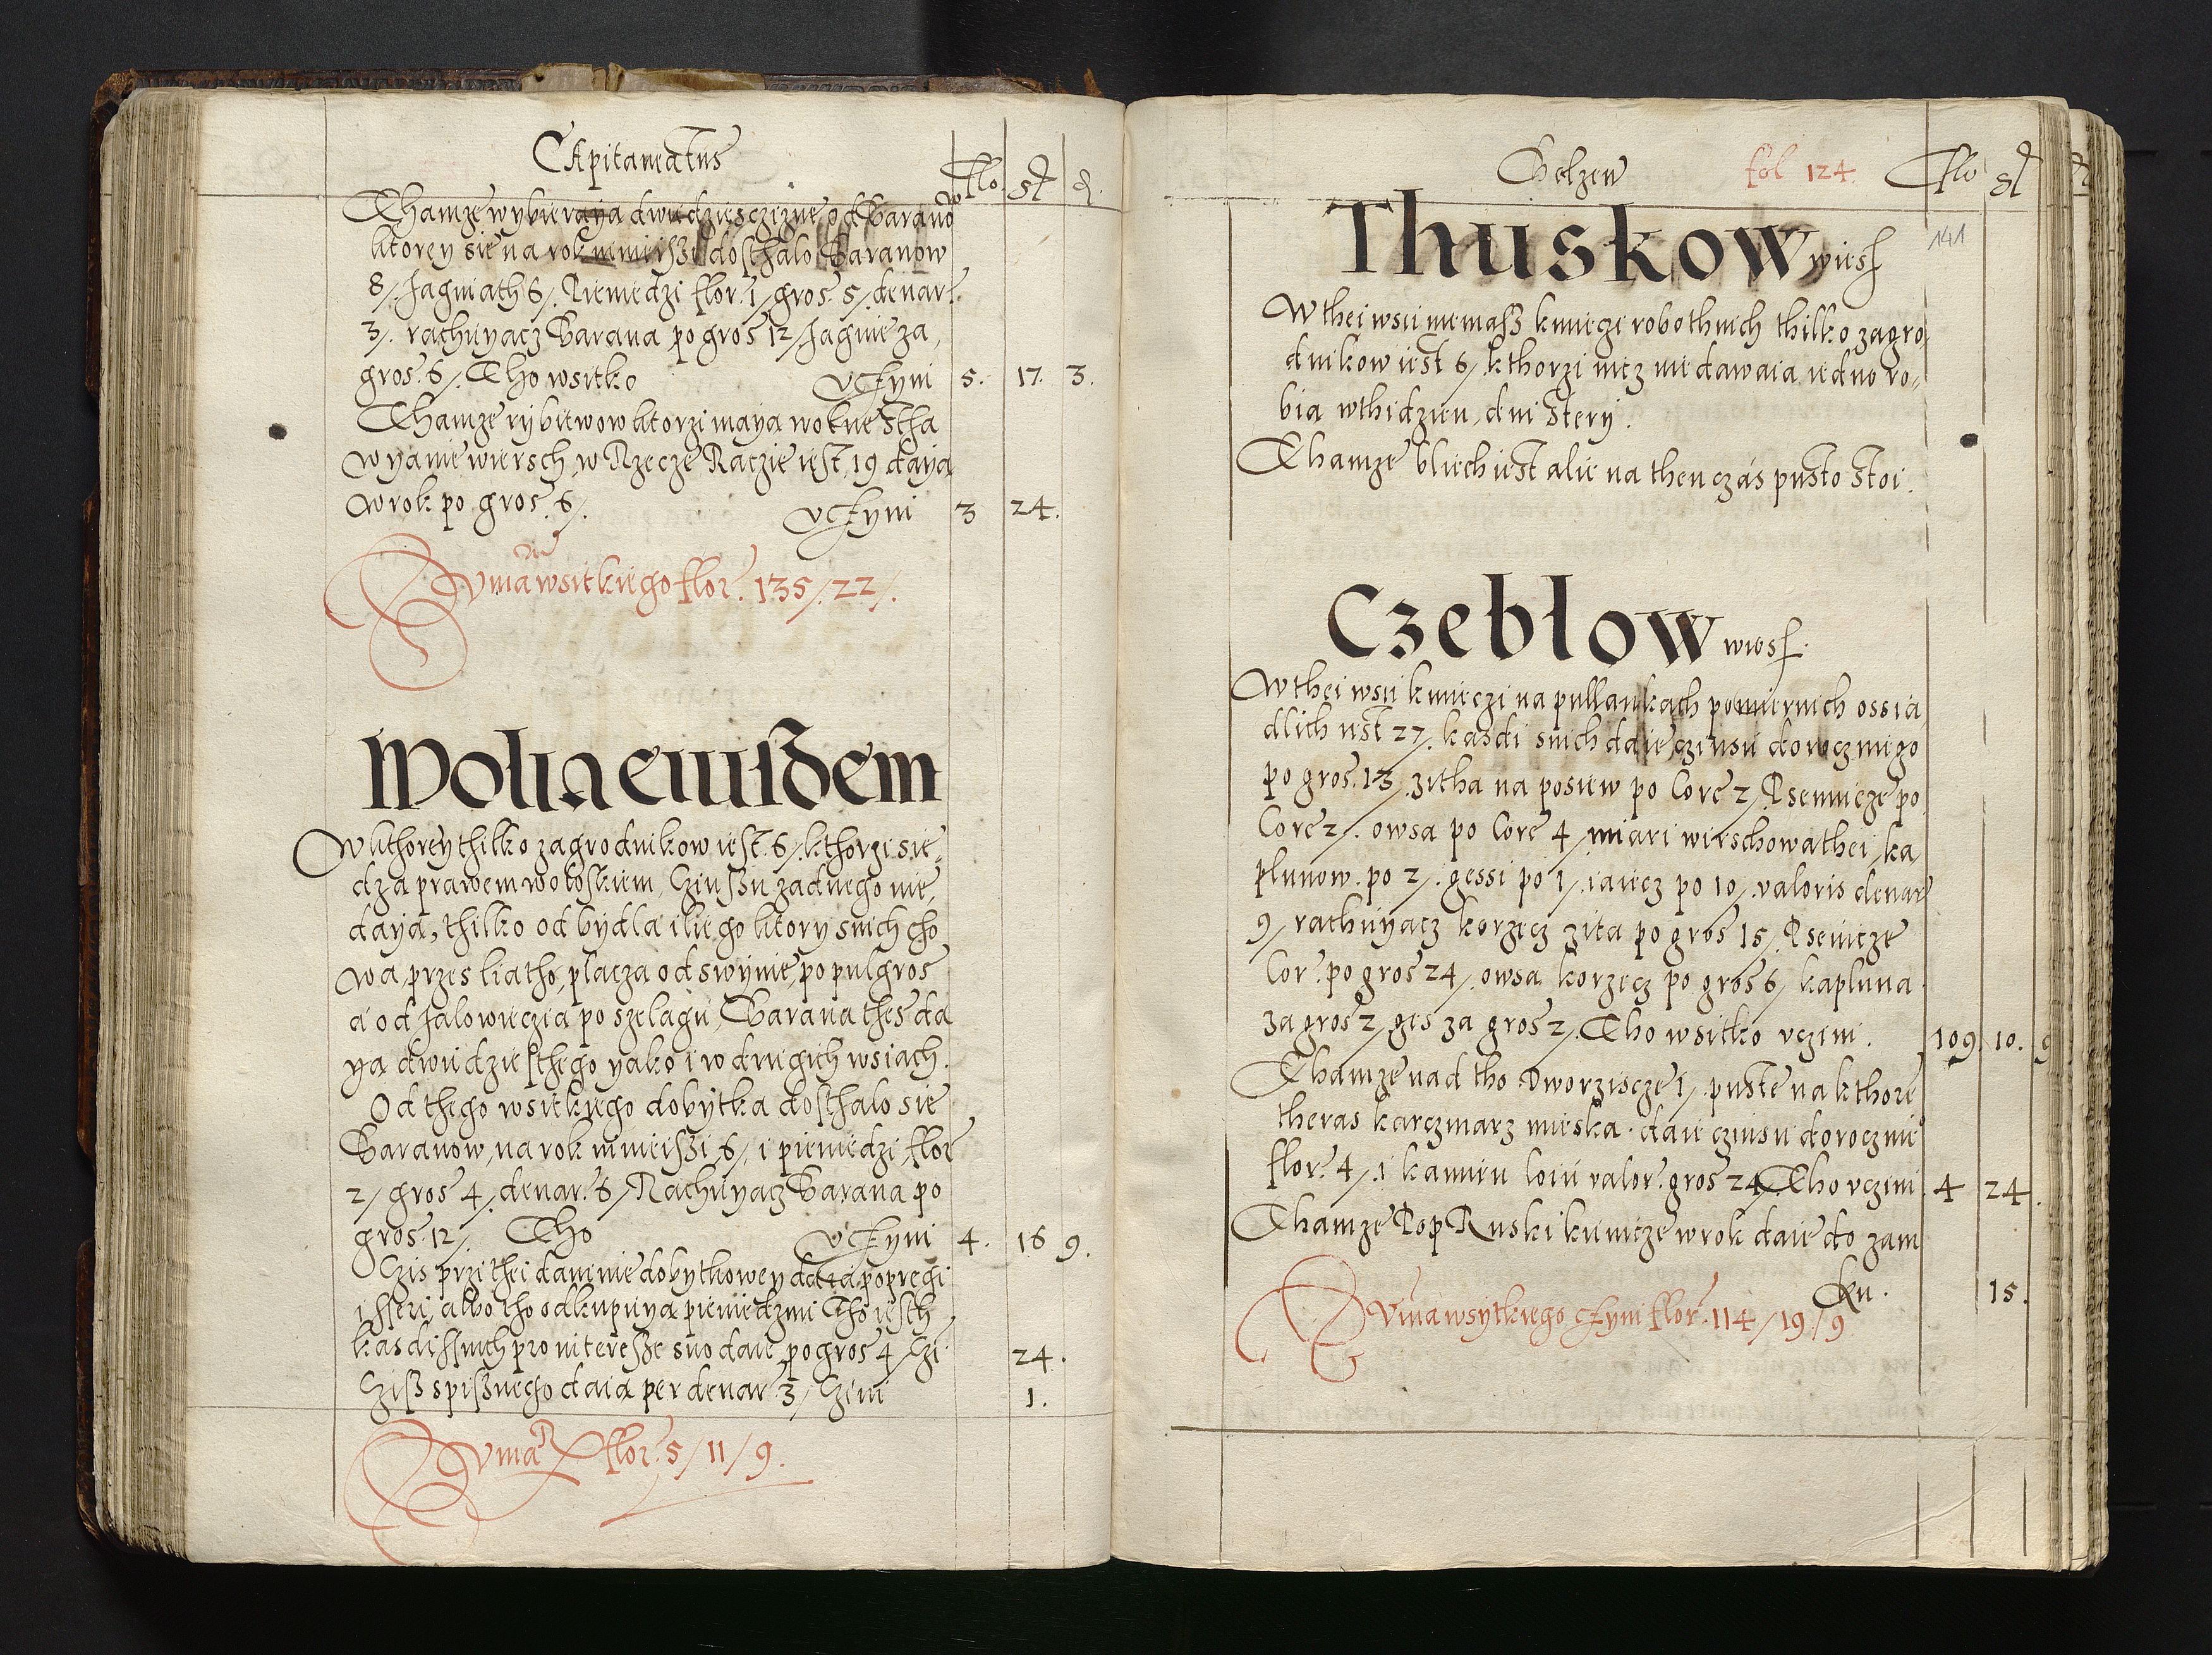 Capitaneatus
Flo. gr. d.
Thamze wybieraya dwudziesczizne od Baranow
ktorey sie na rok ninieisszi dosthalo Baranow
8/. Jagniath 6/. Pieniedzi flor. 1/ gros. 5/. denar.
3/. rachuyacz Barana po gros 12/ Jagnie za
gros. 6/. Tho wsitko vczyni 5. 17. 3.
Thamze rybitwow ktorzi maya wolne stha
wyanie wiersch w Rzecze Raczie iest 19 daya
w rok po gros. 6/. vczyni 3 24.
Summa wsitkiego flor. 135/. 22/.
Wolia eiusdem
W kthorey thilko zagrodnikow iest 6/. kthorzi sie
dza prawem woloskiem, Czinssu zadnego nie
daya, thilko od bydla iliego ktory snich cho
wa, przes liatho, placza od swynie, po pulgros
a od Jalowiczia po szelagu, Barana thes da
ya dwudziesthego yako i w drugich wsiach.
Od thego wsitkiego dobytka dosthalo sie
Baranow, na rok ninieiszi 6/. i pieniedzi flor
2/ gros 4/. denar. 6/. Rachuyacz Barana po
gros. 12/. Tho vczyni 4. 16 9.
Czis przi thei daninie dobythowey daia popregi
i sseri, albo tho odkupuya pieniedzmi Tho iesth
kasdi ssnich pro interesse suo daie po gros 4/ Czi. 24.
Cziss spissnego daia per denar 3/ Czini 1.
Summa flor. 5/ 11/ 9.
Belzen fol 124. Flo gr d
141
Thuskow wies
W thei wsii niemass kmieczi robothnich thilko zagro
dnikow iest 6/ kthorzi nicz nie dawaia iedno ro
bia w thidzien, dni stery.
Thamze bliech iest alie na then czas pusto stoi.
Czebłow wies.
W thei wsii kmieczi na pullankach pomiernich ossia
dlich iest 27/. kasdi snich daie czinsu dorocznego
po gros. 13/. zitha na posiew po Core 2/. Psenicze po
Core 2/. owsa po Core 4/ miari wirschowathei, ka
plunow. po 2/. gessi po 1/. iaiecz po 10/. valoris denar
9/ rachuyacz korzecz zita po gros 15/. Psenicze
Cor. po gros 24/. owsa korzecz po gros 6/ kapluna
za gros 2/ ges za gros 2/. Tho wsitko vczini. 109. 10. 9
Thamze nad tho Dworziscze 1/. puste na kthore
theras karczmarz mieska. daie czinsu dorocznie
flor. 4/. i kamien loiu valor. gros 24 Tho vczini 4 24.
Thamze Pop Ruski kunicze w rok daie do zam
ku. 15.
Summa wsytkiego czyni flor. 114/ 19/ 9